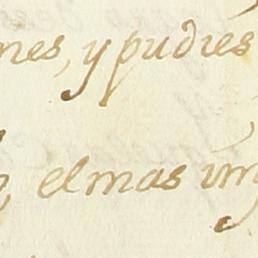 nes, y pudies
, el mas im